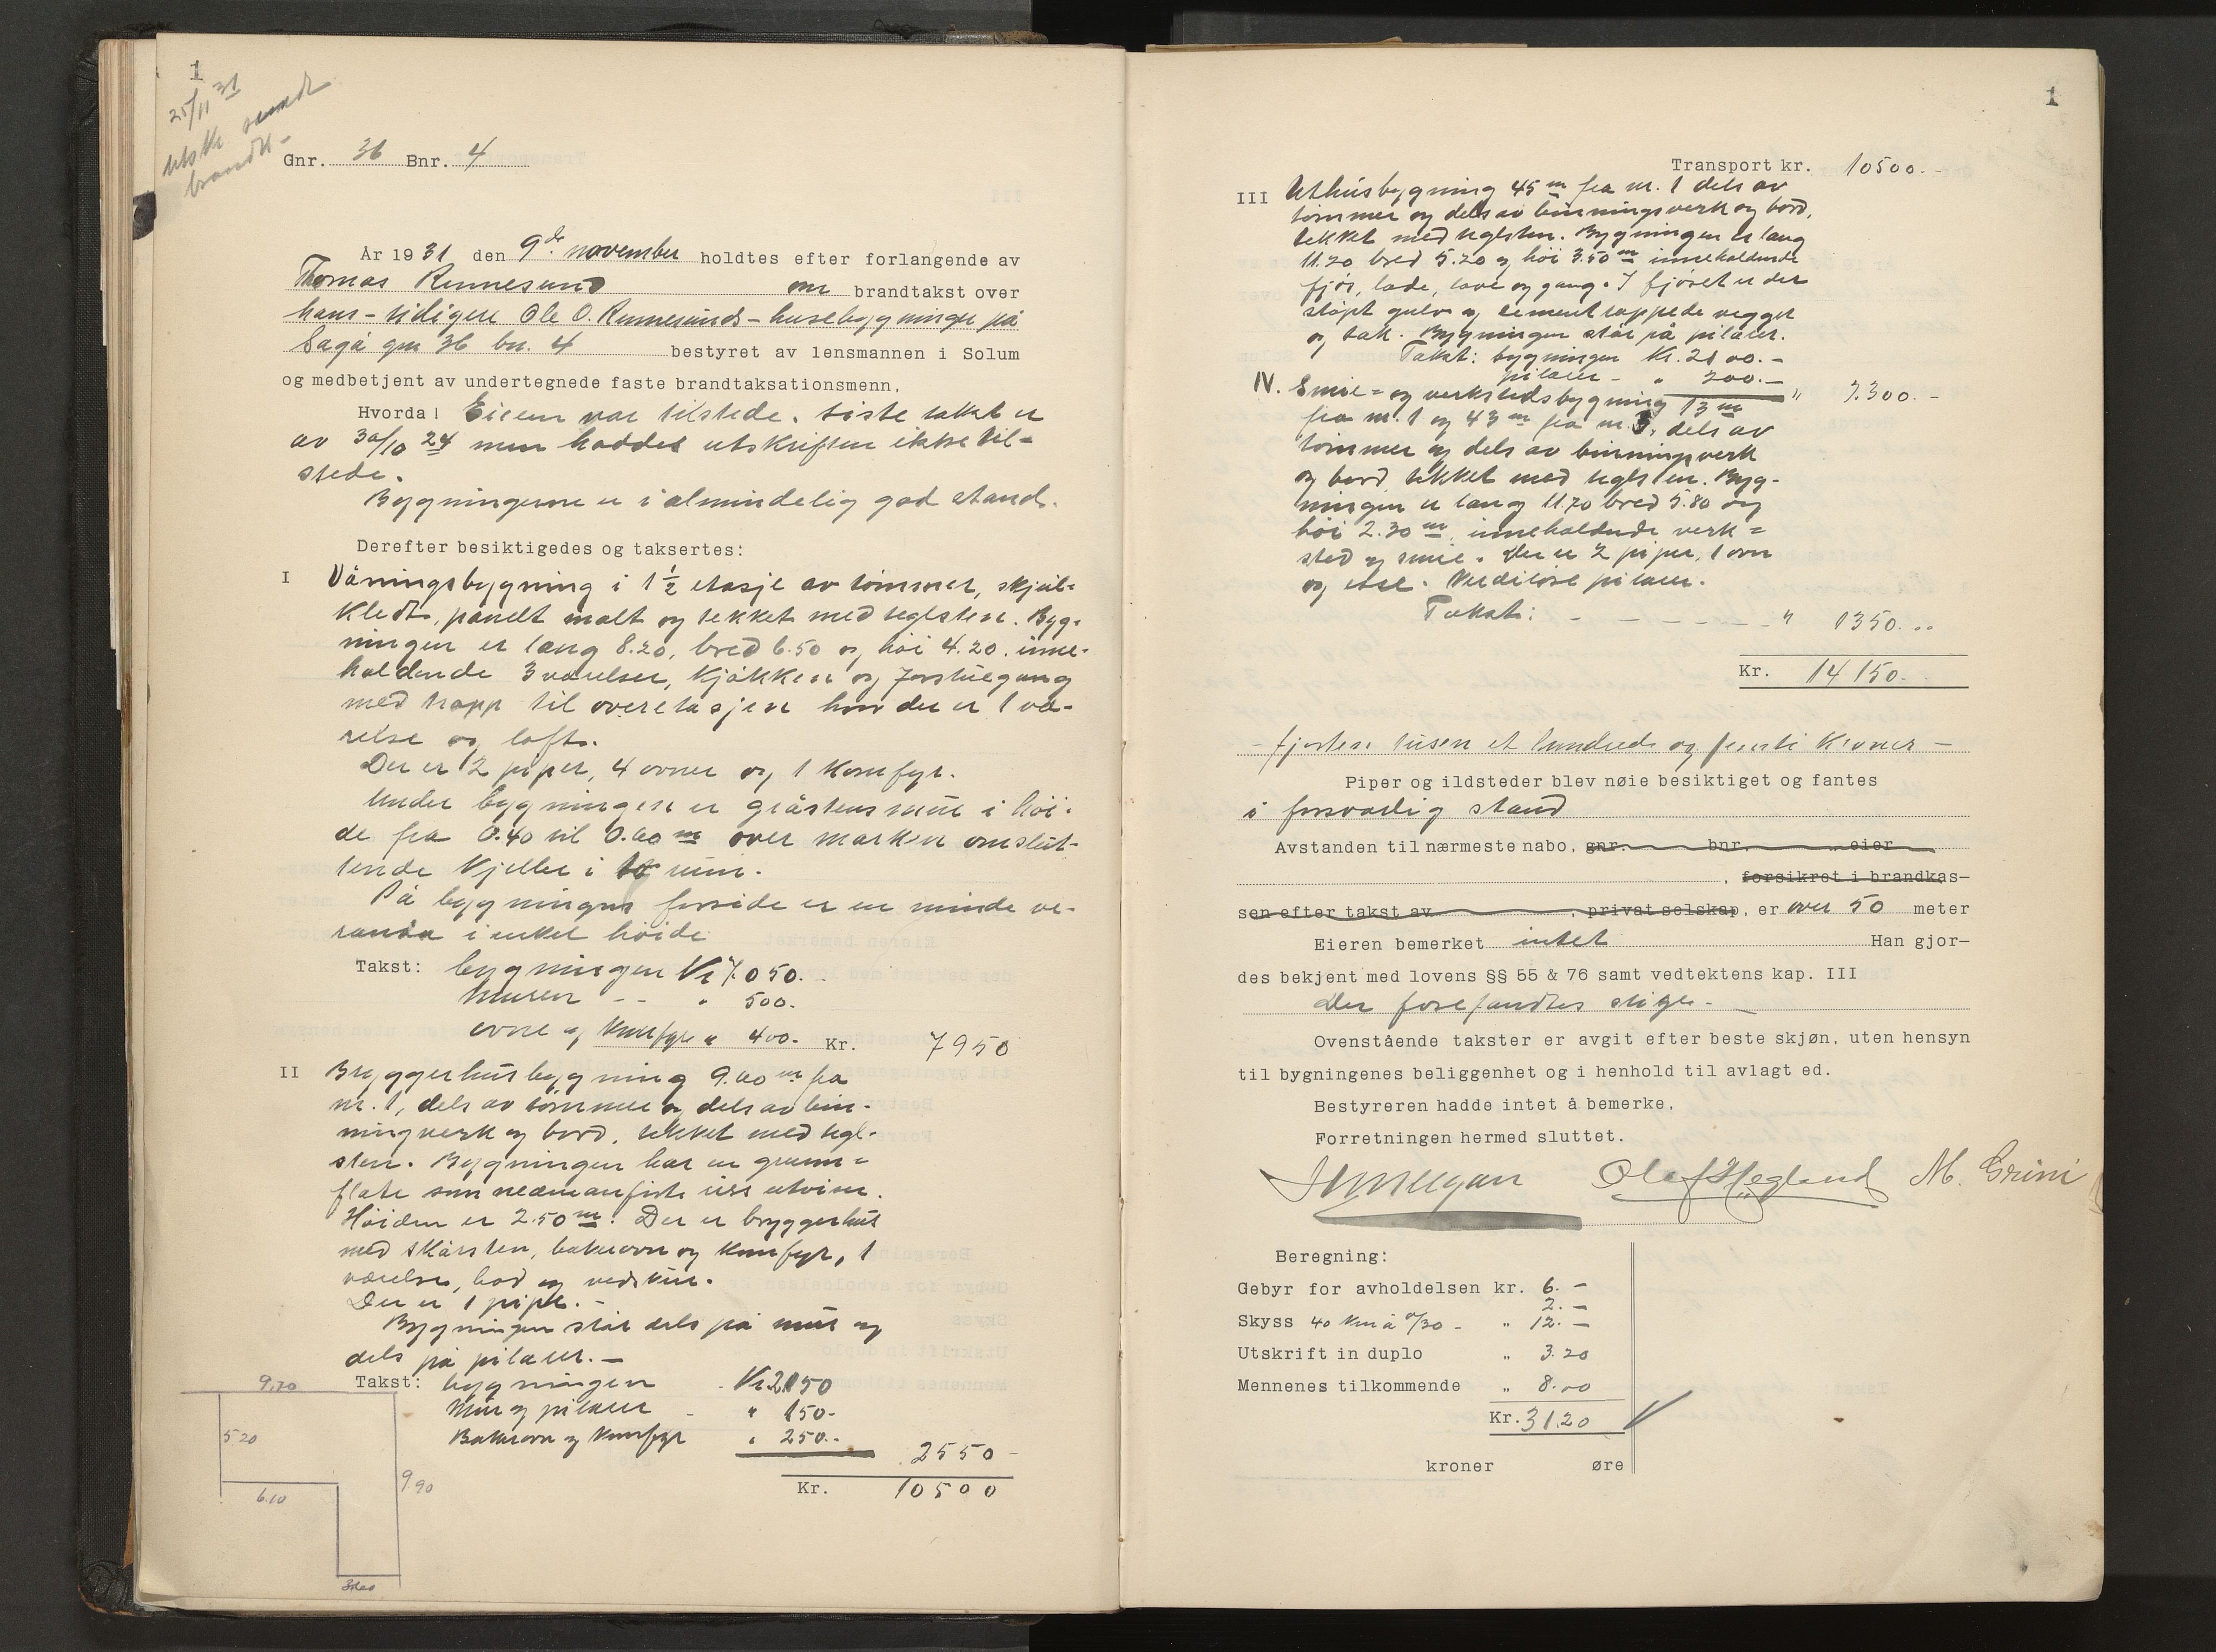 1
25/11 31
utskr sendt
brandk -
Gnr. 36 Bnr. 4
År 1931 den 9de november holdtes efter forlangende av
Thomas Rennesund om brandtakst over
hans - tidigere Ole O. Rennesunds - husebygninger på
Sagå gnr 36 bn. 4 bestyret av lensmannen i Solum
og medbetjent av undertegnede faste brandtaksationsmenn,
Hvorda: Eieren var tilstede. Siste takst er
av 30/10 24 men haddes utskriften ikke til-
stede.
Bygningerne er i almindelig god stand.
Derefter besiktigedes og taksertes:
I Våningsbygning i 1 1/2 etasje av tømmer, skjul-
kledt, panelt malt og tekket med teglsten. Byg-
ningen er lang 8.20, bred 6.50 og høi 4.20. inne-
holdende 3 værelser, kjøkken og forstuegang
med trapp til overetasjen hvor der er 1 væ-
relse og loft.
Der er 2 piper, 4 ovner og 1 komfyr.
Under bygningen er gråstensmur i høi-
de fra 0.40 til 0.60 m over marken omslut-
tende kjeller i rum.
På bygningens forside er en mindre ve-
randa i enkel høide
Takst: bygningen Kr 7050.-
Muren - - " 500.-
ovne og komfyr " 400.- Kr. 7950
II Bryggerhusbygning 9.60 m fra
nr. 1, dels av tømmer og dels av bin-
ningverk og bord, tekket med tegl-
sten. Bygningen har en grunn-
flate som nedenanførte riss utviser.
Høiden er 2.50 m. Der er bryggerhus
med skårsten, bakerovn og komfyr, 1
værelse, bod og vedskur.
Der er 1 pipe. -
Bygningen står dels på mur og
dels på pilarer. -
Takst: bygningen Kr 2150
Mur og pilarer - " 150.-
Bakerovn og komfyr " 250.- 2550 -
Kr. 10500
9.70
5 20
6.10
9.90
3.60
1
Transport kr. 10500.-
III Uthusbygning 45 m fra nr. 1 dels av
tømmer og dels av binningsverk og bord,
tekket med teglsten. Bygningen er lang
11.20 bred 5.20 og høi 3.50 m inneholdende
fjøs, lade, låve og gang. I fjøset er der
støpt gulv og cementrappede vegger
og tak. Bygningen står på pilarer.
Takst: bygningen Kr. 2100.-
pilarer - " 200.- " 2.300.-
IV. Smie- og verkstedsbygning 13 m
fra nr. 1 og 43 m fra nr. 3, dels av
tømmer og dels av binningverk
og bord tekket med teglsten. Byg-
ningen er lang 11.70 bred 5.80 og
høi 2.30 m, inneholdende verk-
sted og smie. Der er 2 piper, 1 ovn
og esse. Verdiløse pilarer.
Takst: - - - - - - " 1350.-
Kr. 14150.-
- fjorten tusen et hundrede og femti kroner -
Piper og ildsteder blev nøie besiktiget og fantes
i forsvarlig stand
Avstanden til nærmeste nabo, gnr. bnr. eier
, forsikret i brandkas-
sen efter takst av , privat selskap, er over 50 meter
Eieren bemerket intet Han gjor-
des bekjent med lovens §§ 55 & 76 samt vedtektens kap. III
Der forefandtes stiger -
Ovenstående takster er avgit efter beste skjøn, uten hensyn
til bygningenes beliggenhet og i henhold til avlagt ed.
Bestyreren hadde intet å bemerke.
Forretningen hermed sluttet.
Olaf Hegland M. Grini
Beregning:
Gebyr for avholdelsen kr. 6.-
2.-
Skyss 40 km à 0/30 - " 12.-
Utskrift in duplo " 3.20
Mennenes tilkommende " 8.00
Kr. 31.20
kroner øre